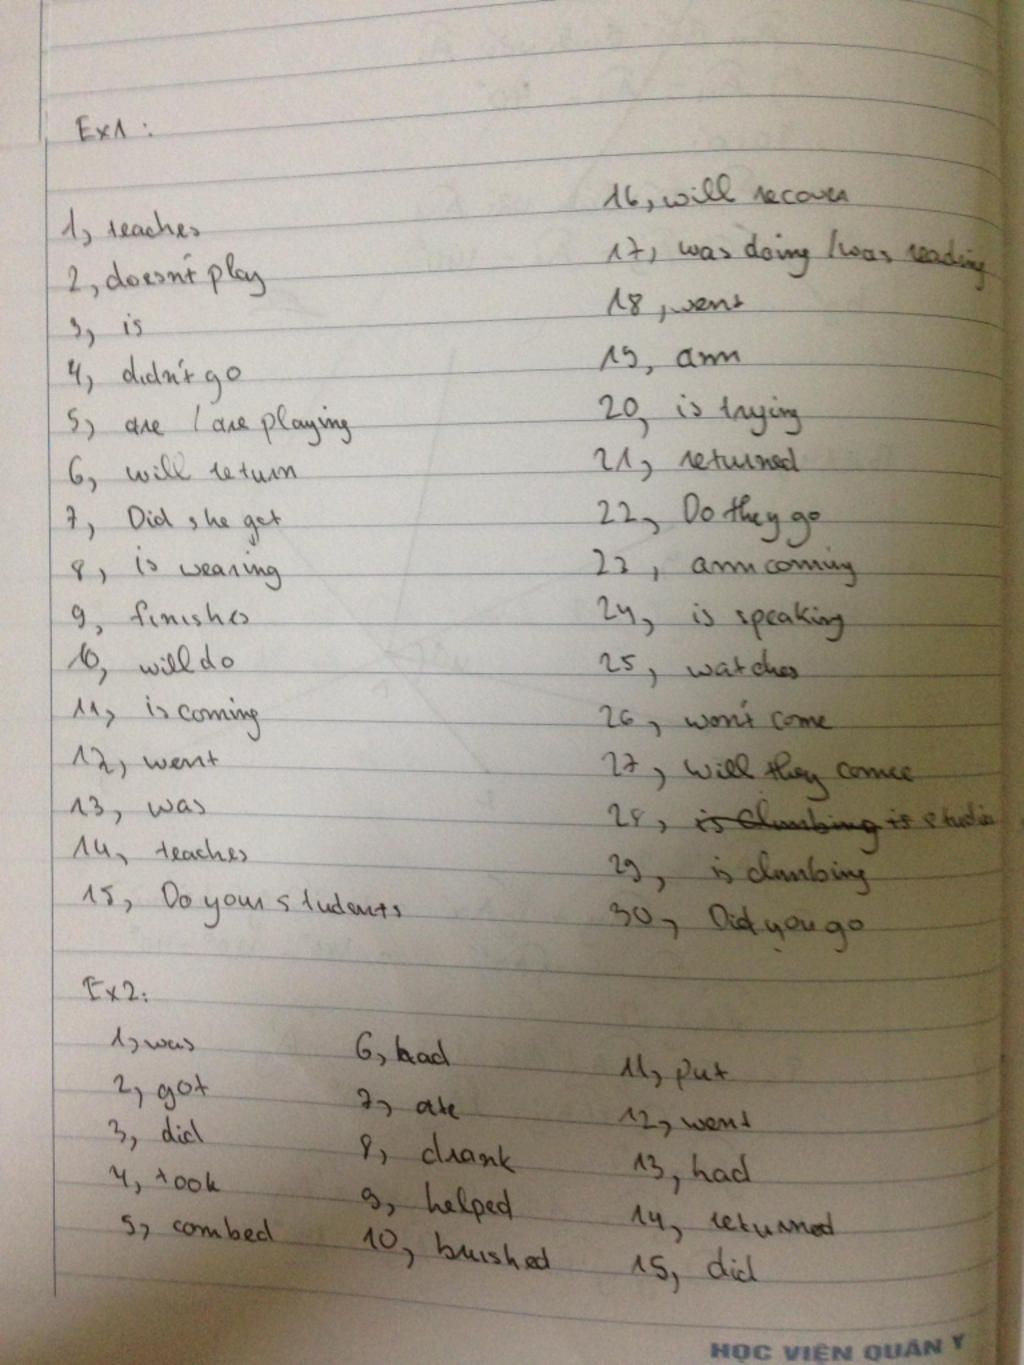 Ex1:
1, teaches
2, doesn't play
3, is
4, didn't go
5, are / are playing
6, will return
7, Did she get
8, is wearing
9, finishes
10, will do
11, is coming
12, went
13, was
14, teaches
15, Do your students
16, will recover
17, was doing / was reading
18, went
19, am
20, is trying
21, returned
22, Do they go
23, am coming
24, is speaking
25, watches
26, won't come
27, will they come
28, is
29, is climbing
30, Did you go
Ex2:
1, was
2, got
3, did
4, took
5, combed
6, had
7, ate
8, drank
9, helped
10, brushed
11, put
12, went
13, had
14, returned
15, did
HỌC VIỆN QUÂN Y